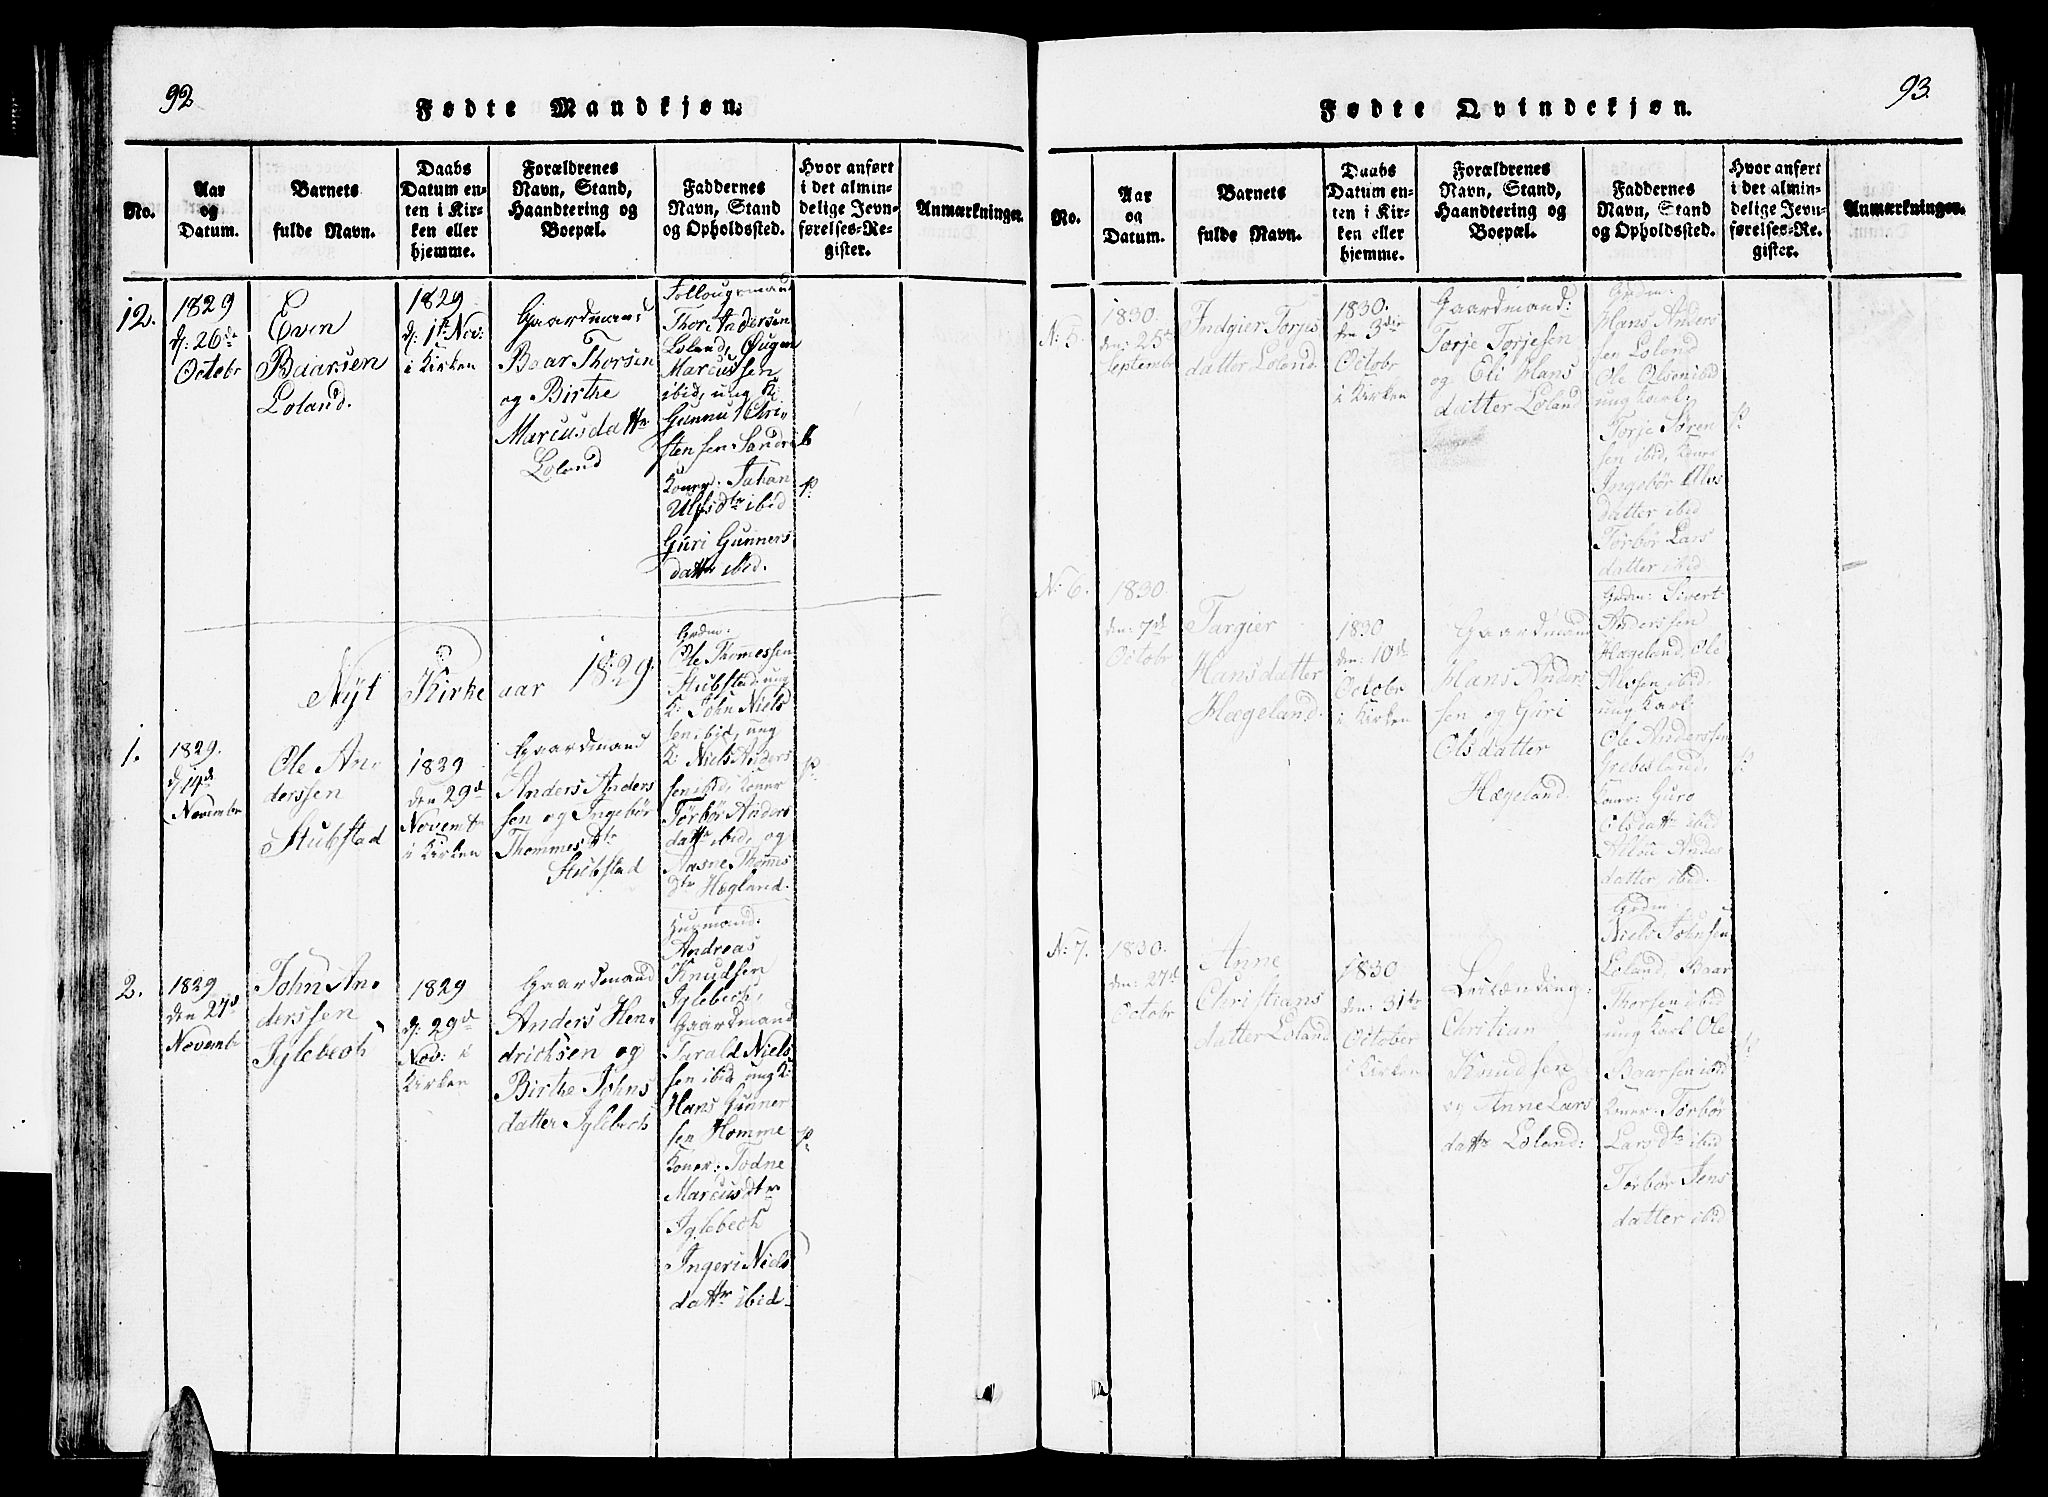 92
Fødte Mandkjøn.
No.
Aar
og
Datum.
Barnets
fulde Navn.
Daabs
Datum en-
ten i Kir-
ken eller
hjemme.
Forældrenes
Navn, Stand,
Haandtering og
Boepæl.
Faddernes
Navn, Stand
og Opholdssted.
Hvor anført
i det almin-
delige Jevn-
førelses-Re-
gister.
Anmærkninger.
12.
1829
d: 26de
Octobr
Even
Baarsen
Loland.
1829
d: 1ste Nov:
i Kirken
Gaardmand
Baar Thorsen
og Birthe
Marcusdattr
Loland
Thore Andersen
Loland,
Marcussen
ibid, ung K:
Gunnu Chri,
stensen
Koner:
Ulfsdtr ibid
Guri Gunners
dattr ibid.
Nyt Kirke aar 1829.
1.
1829.
d 14de
Novembr
Ole An,
derssen
Stubstad
1829
den 29de
Novembr
i Kirken
Gaardmand
Anders Anders
sen og Ingebør
Thommesdtr
Stubstad
Grdm:
Ole Thomessen
Stubstad, ung
K: John Niels
sen ibid, ung
K: Niels Anders
sen ibid, Koner
Torbør Anders
dattr ibid, og
Aasne Thomes
dtr Hægland.
2.
1829
den 27de
Novembr
John An,
derssen
Iglebech
1829
d: 29de
Nov: i
Kirken
Gaardmand
Anders Hen,
dricksen og
Birthe Johns
datter Iglebech
Husmand:
Andreas
Knudsen
Iglebech,
Gaardmand
Tarald Niels
sen ibid, ung K:
Hans Gunner
sen Homme
Koner: Todne
Marcusdtr
Iglebech
Ingeri Niels
dattr ibid.
93.
Fødte Qvindekjøn.
No.
Aar
og
Datum.
Barnets
fulde Navn.
Daabs
Datum en-
ten i Kir-
ken eller
hjemme.
Forældrenes
Navn, Stand,
Haandtering og
Boepæl.
Faddernes
Navn, Stand
og Opholdssted.
Hvor anført
i det almin-
delige Jevn-
førelses-Re-
gister.
Anmærkninger.
N: 5.
1830.
den: 25de
Septembr
Indgier Torjes
datter Loland.
1830.
den 3die
Octobr
i Kirken
Gaardmand:
Torje Torjesen
og Eli Hans
datter Loland
Grdm:
Hans Anders
sen Loland
Ole Olsen ibid
ung Karl:
Torje Søren
sen ibid, Koner
Ingebør Alvs
datter ibid
Torbør Lars
datter ibid
N: 6.
1830.
den: 7de
Octobr
Targier
Hansdatter
Hægeland.
1830
den: 10de
Octobr
i Kirken
Gaardmand
Hans Anders
sen og Giri
Olsdatter
Hægeland.
Grdm: Sivert
Anderssen
Hægeland, Ole
Alvsen ibid,
ung Karl:
Ole Anderssen
Grebesland,
Koner: Guro
Olsdattr ibid
datter, ibid.
N: 7.
1830.
den: 27de
Octobr
Anne
Christians
datter Loland
1830
den: 31te
October
i Kirken
Christian
Knudsen
og Anne Lars
dattr Loland:
Grdm:
Niels Johnsen
Loland, Baar
Thorsen ibid
ung Karl Ole
Baarsen ibid
Koner: Torbør
Larsdtr ibid
Torbør Jens
datter ibid